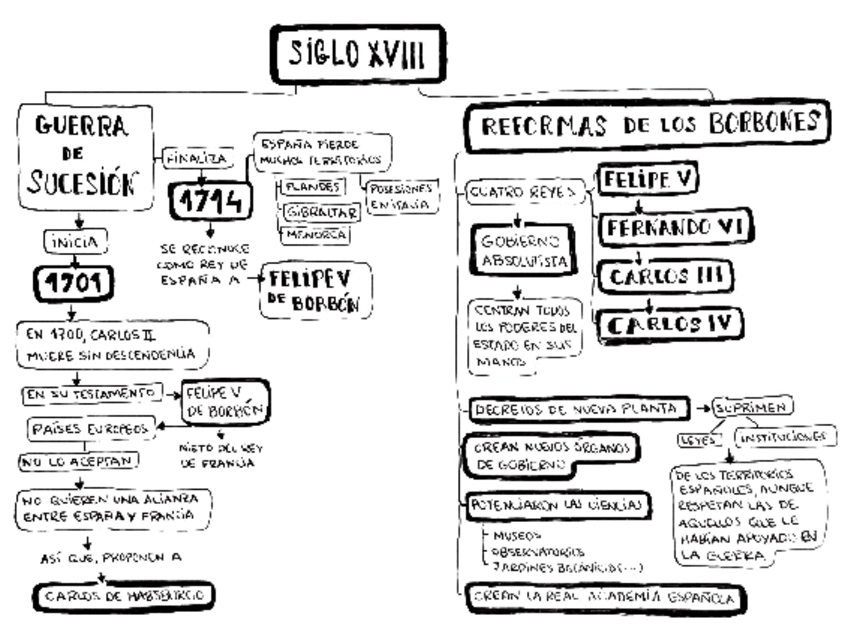 SIGLO XVIII
GUERRA
DE
SUCESIÓN
INICIA
1701
EN 1700, CARLOS II
MUERE SIN DESCENDENCIA
EN SU TESTAMENTO
FELIPE V
DE BORBÓN
NIETO DEL REY
DE FRANCIA
PAÍSES EUROPEOS
NO LO ACEPTAN
NO QUIEREN UNA ALIANZA
ENTRE ESPAÑA Y FRANCIA
ASÍ QUE, PROPONEN A
CARLOS DE HABSBURGO
FINALIZA
1714
ESPAÑA PIERDE
MUCHOS TERRITORIOS
FLANDES
GIBRALTAR
MENORCA
POSESIONES
EN ITALIA
SE RECONOCE
COMO REY DE
ESPAÑA A
FELIPE V
DE BORBÓN
REFORMAS DE LOS BORBONES
CUATRO REYES
FELIPE V
FERNANDO VI
CARLOS III
CARLOS IV
GOBIERNO
ABSOLUTISTA
CENTRAN TODOS
LOS PODERES DEL
ESTADO EN SUS
MANOS
DECRETOS DE NUEVA PLANTA
SUPRIMEN
LEYES
INSTITUCIONES
DE LOS TERRITORIOS
ESPAÑOLES, AUNQUE
RESPETAN LAS DE
AQUELLOS QUE LE
HABÍAN APOYADO EN
LA GUERRA
CREAN NUEVOS ÓRGANOS
DE GOBIERNO
POTENCIARON LAS CIENCIAS
- MUSEOS
- OBSERVATORIOS
- JARDINES BOTÁNICOS (...)
CREAN LA REAL ACADEMIA ESPAÑOLA